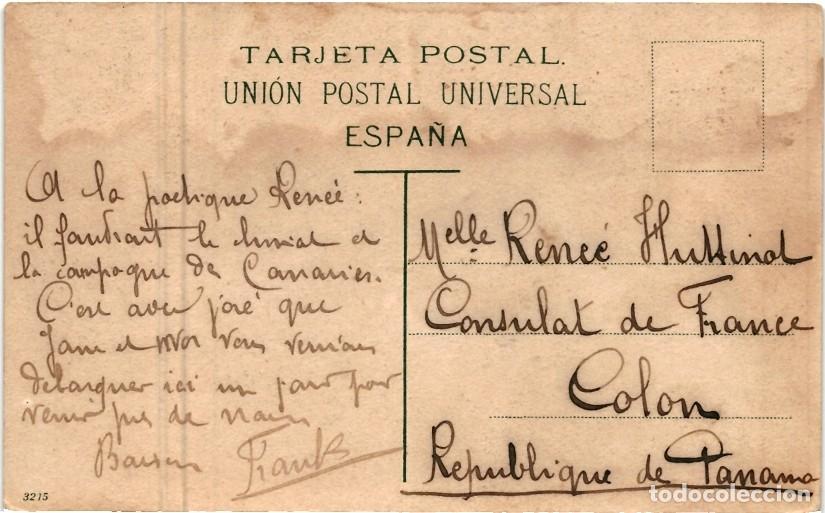 TARJETA POSTAL.
UNIÓN POSTAL UNIVERSAL
ESPAÑA
A la poetique Reneé:
il faudrait le climat et
la campagne des Canaries.
C'est avec joie que
Jane et moi vous verrions
debarquer ici un jour pour
venir pres de nous
Baisers Frank
Melle Reneé Huttinot
Consulat de France
Colon
Republique de Panama
3215
todocoleccion